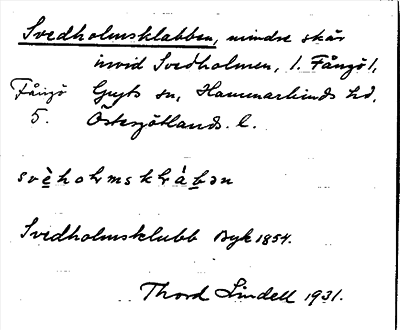 Svedholmsklabben, mindre skär
invid Svedholmen, l. Fångö l,
Fångö Gryts sn, Hammarkinds hd,
5. Östergötlands l.
Svedholmsklubb Byk 1854.
Thord Lindell 1931.